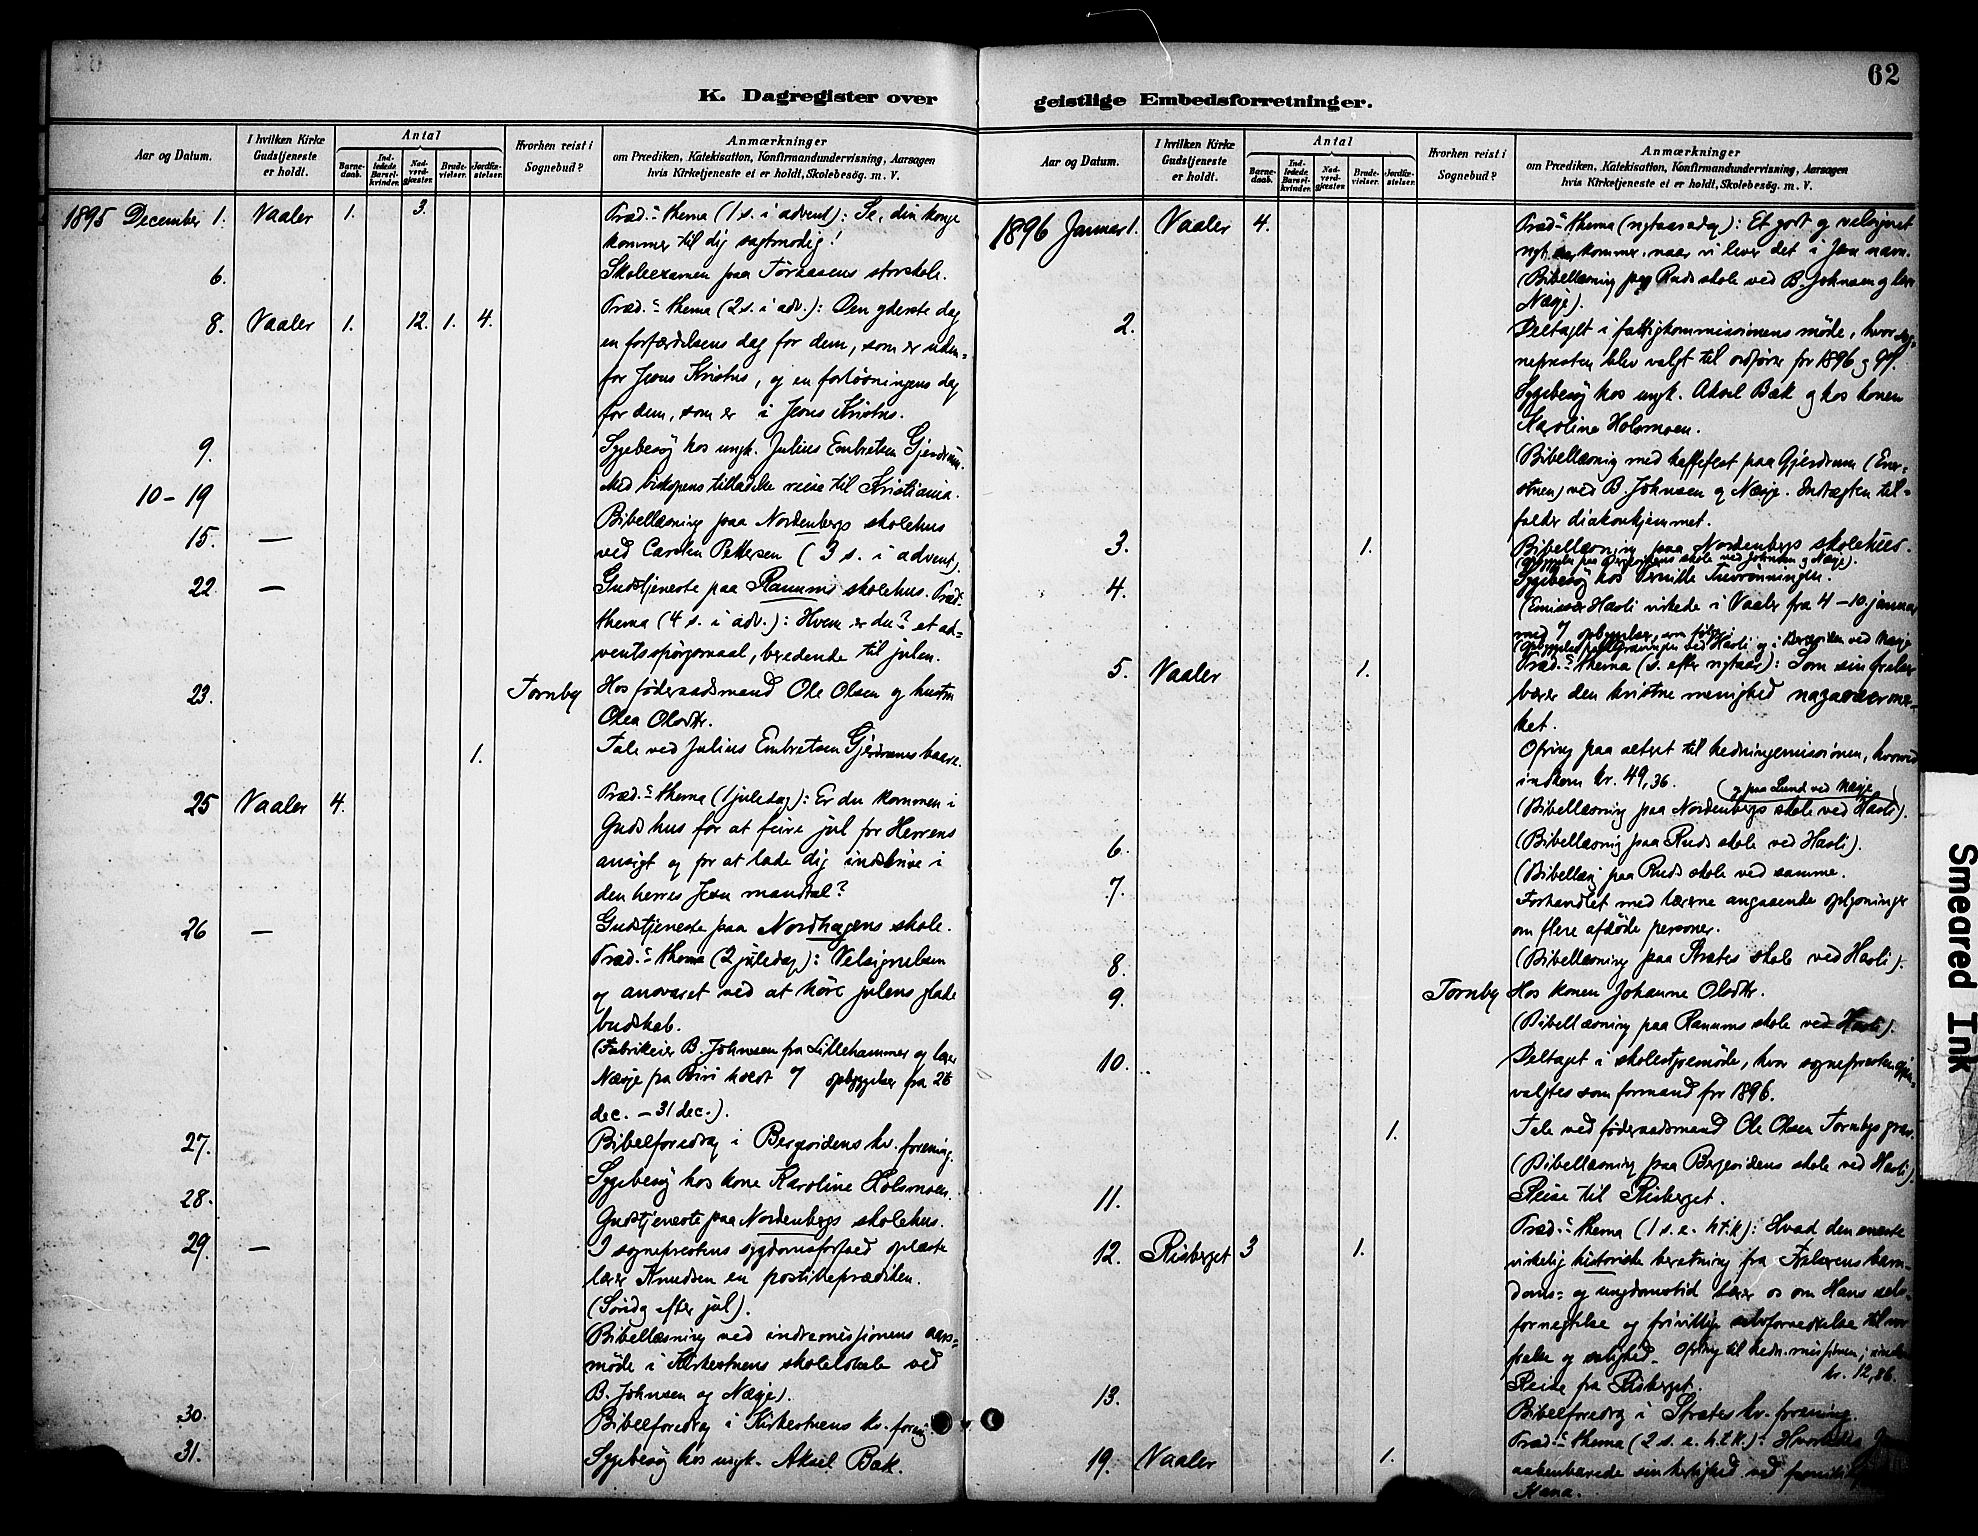 K. Dagregister over
Aar og Datum.
I hvilken Kirke Gudstjeneste er holdt.
Antal
Barnedaab.
Indledede Barselkvinder.
Nadverdgjæster.
Brudevielser.
Jordfæstelser.
Hvorhen reist i Sognebud?
Anmærkninger
om Prædiken, Katekisation, Konfirmandundervisning, Aarsagen
hvis Kirketjeneste ei er holdt, Skolebesøg. m. V.
1895 December 1. Vaaler 1. 3. Præd.s thema (1 s. i advent): Se, din konge
kommer til dig sagtmodig!
6. Skoleexamen paa Toraasens storskole.
8. Vaaler 1. 12. 1. 4. Præd.s thema (2 s. i adv.): Den yderste dag
en forfærdelsens dag for dem, som er uden-
for Jesus Kristus, og en forløsningens dag
for dem, som er i Jesus Kristus.
9. Sygebesøg hos ungk. Julius Embretsen Gjerdrum.
10-19 Med biskopens tilladelse reise til Kristiania.
15. — Bibellæsning paa Nordenbergs skolehus
ved Carsten Pettersen (3 s. i advent).
22 — Gudstjeneste paa Ranums skolehus. Præd.s
thema (4 s. i adv.): Hvem er du? et ad-
ventsspørgsmaal, beredende til julen.
23. Tornby Hos føderaadsmand Ole Olsen og hustru
Olea Olsdtr.
1. Tale ved Julius Embretsen Gjerdrums baare.
25 Vaaler 4. Præd.s thema (1 juledag): Er du kommen i
Guds hus for at feire jul for Herrens
ansigt og for at lade dig indskrive i
den herres Jesu mandtal?
26 — Gudstjeneste paa Nordhagens skole.
Præd.s thema (2 juledag): Velsignelsen
og ansvaret ved at høre julens glade
budskab.
(Fabrikeier B. Johnsen fra Lillehammer og lærer
Næsje fra Biri holdt 7 opbyggelser fra 26
dec. - 31 dec.).
27. Bibelforedrag i Bergesidens kv. forening.
28. Sygebesøg hos kone Karoline Holsmoen.
Gudstjeneste paa Nordenbergs skolehus.
29. — I sogneprestens sygdomsforfald oplæste
lærer Knudsen en postilleprædiken.
(Søndag efter jul).
Bibellæsning ved indremissionens aars-
møde i Kirkestuens skolelokale ved
B. Johnsen og Næsje).
30. Bibelforedrag i Kirkestuens kv. forening
31. Sygebesøg hos ungk. Aksel Bæk.
62
geistlige Embedsforretninger.
Aar og Datum.
I hvilken Kirke Gudstjeneste er holdt.
Antal
Barnedaab.
Indledede Barselkvinder.
Nadverdgjæster.
Brudevielser.
Jordfæstelser.
Hvorhen reist i Sognebud?
Anmærkninger
om Prædiken, Katekisation, Konfirmandundervisning, Aarsagen
hvis Kirketjeneste ei er holdt, Skolebesøg. m. V.
1896 Januar 1. Vaaler 4. Præd.s thema (nytaarsdag): Et godt og velsignet
nyt aar kommer, naar vi lever det i Jesu navn.
(Bibellæsning paa Ruds skole ved B. Johnsen og lærer
Næsje).
2. Deltaget i fattigkommissionens møde, hvor sog-
nepresten blev valgt til ordfører for 1896 og 97.
Sygebesøg hos ungk. Aksel Bæk og hos konen
Karoline Holsmoen.
(Bibellæsning med kaffefest paa Gjerdrum
ved B. Johnsen og Næsje. Indtægten til-
falder diakonhjemmet.
3. 1. Bibellæsning paa Nordenbergs skolehus.
4. Sygebesøg hos Pernille
(Emissær Hasli virkede i Vaaler fra 4-10 januar
med 7 opbyggelser, som følger:
5. Vaaler 1. Præd.s thema (s. efter nytaar): Som sin frelser
bærer den kristne menighed nazaræermær-
ket.
Ofring paa alteret til hedningemissionen, hvorved
indkom kr. 49,36.
(og paa Lund ved Næsje)
(Bibellæsning paa Nordenbergs skole ved Hasli).
6. (Bibellæsning paa Ruds skole ved Hasli).
7. (Bibellæsg paa Ruds skole ved samme.
Forhandlet med lærerne angaaende oplysninger
om flere afdøde personer.
8. (Bibellæsning paa Strætes skole ved Hasli).
9. Tornby Hos konen Johanne Olsdtr.
(Bibellæsning paa Ranums skole ved Hasli).
10. Deltaget i skolestyremøde, hvor sognepresten gjen-
valgtes som formand for 1896.
1. Tale ved føderaadsmand Ole Olsen Tornbys grav.
(Bibellæsning paa Bergesidens skole ved Hasli).
11. Reise til Risberget.
12. Risberget 3 1. Præd.s thema (1 s. e. h.t.k): Hvad den eneste
virkelig historiske beretning fra Frelserens barn-
doms- og ungdomstid lærer os om Hans selv-
fornegtelse og frivillige selvfornedrelse til vor
frelse og salighed. Ofring til hedn.missionen; indkom
kr. 12,86.
13. Reise fra Risberget.
Bibelforedrag i Strætes kv. forening.
19. Vaaler 1. Præd.s thema (2 s. e. h.t.k.): Hvorledes Jesus
aabenbarede sin herlighed ved
Kana.
Smeared Ink